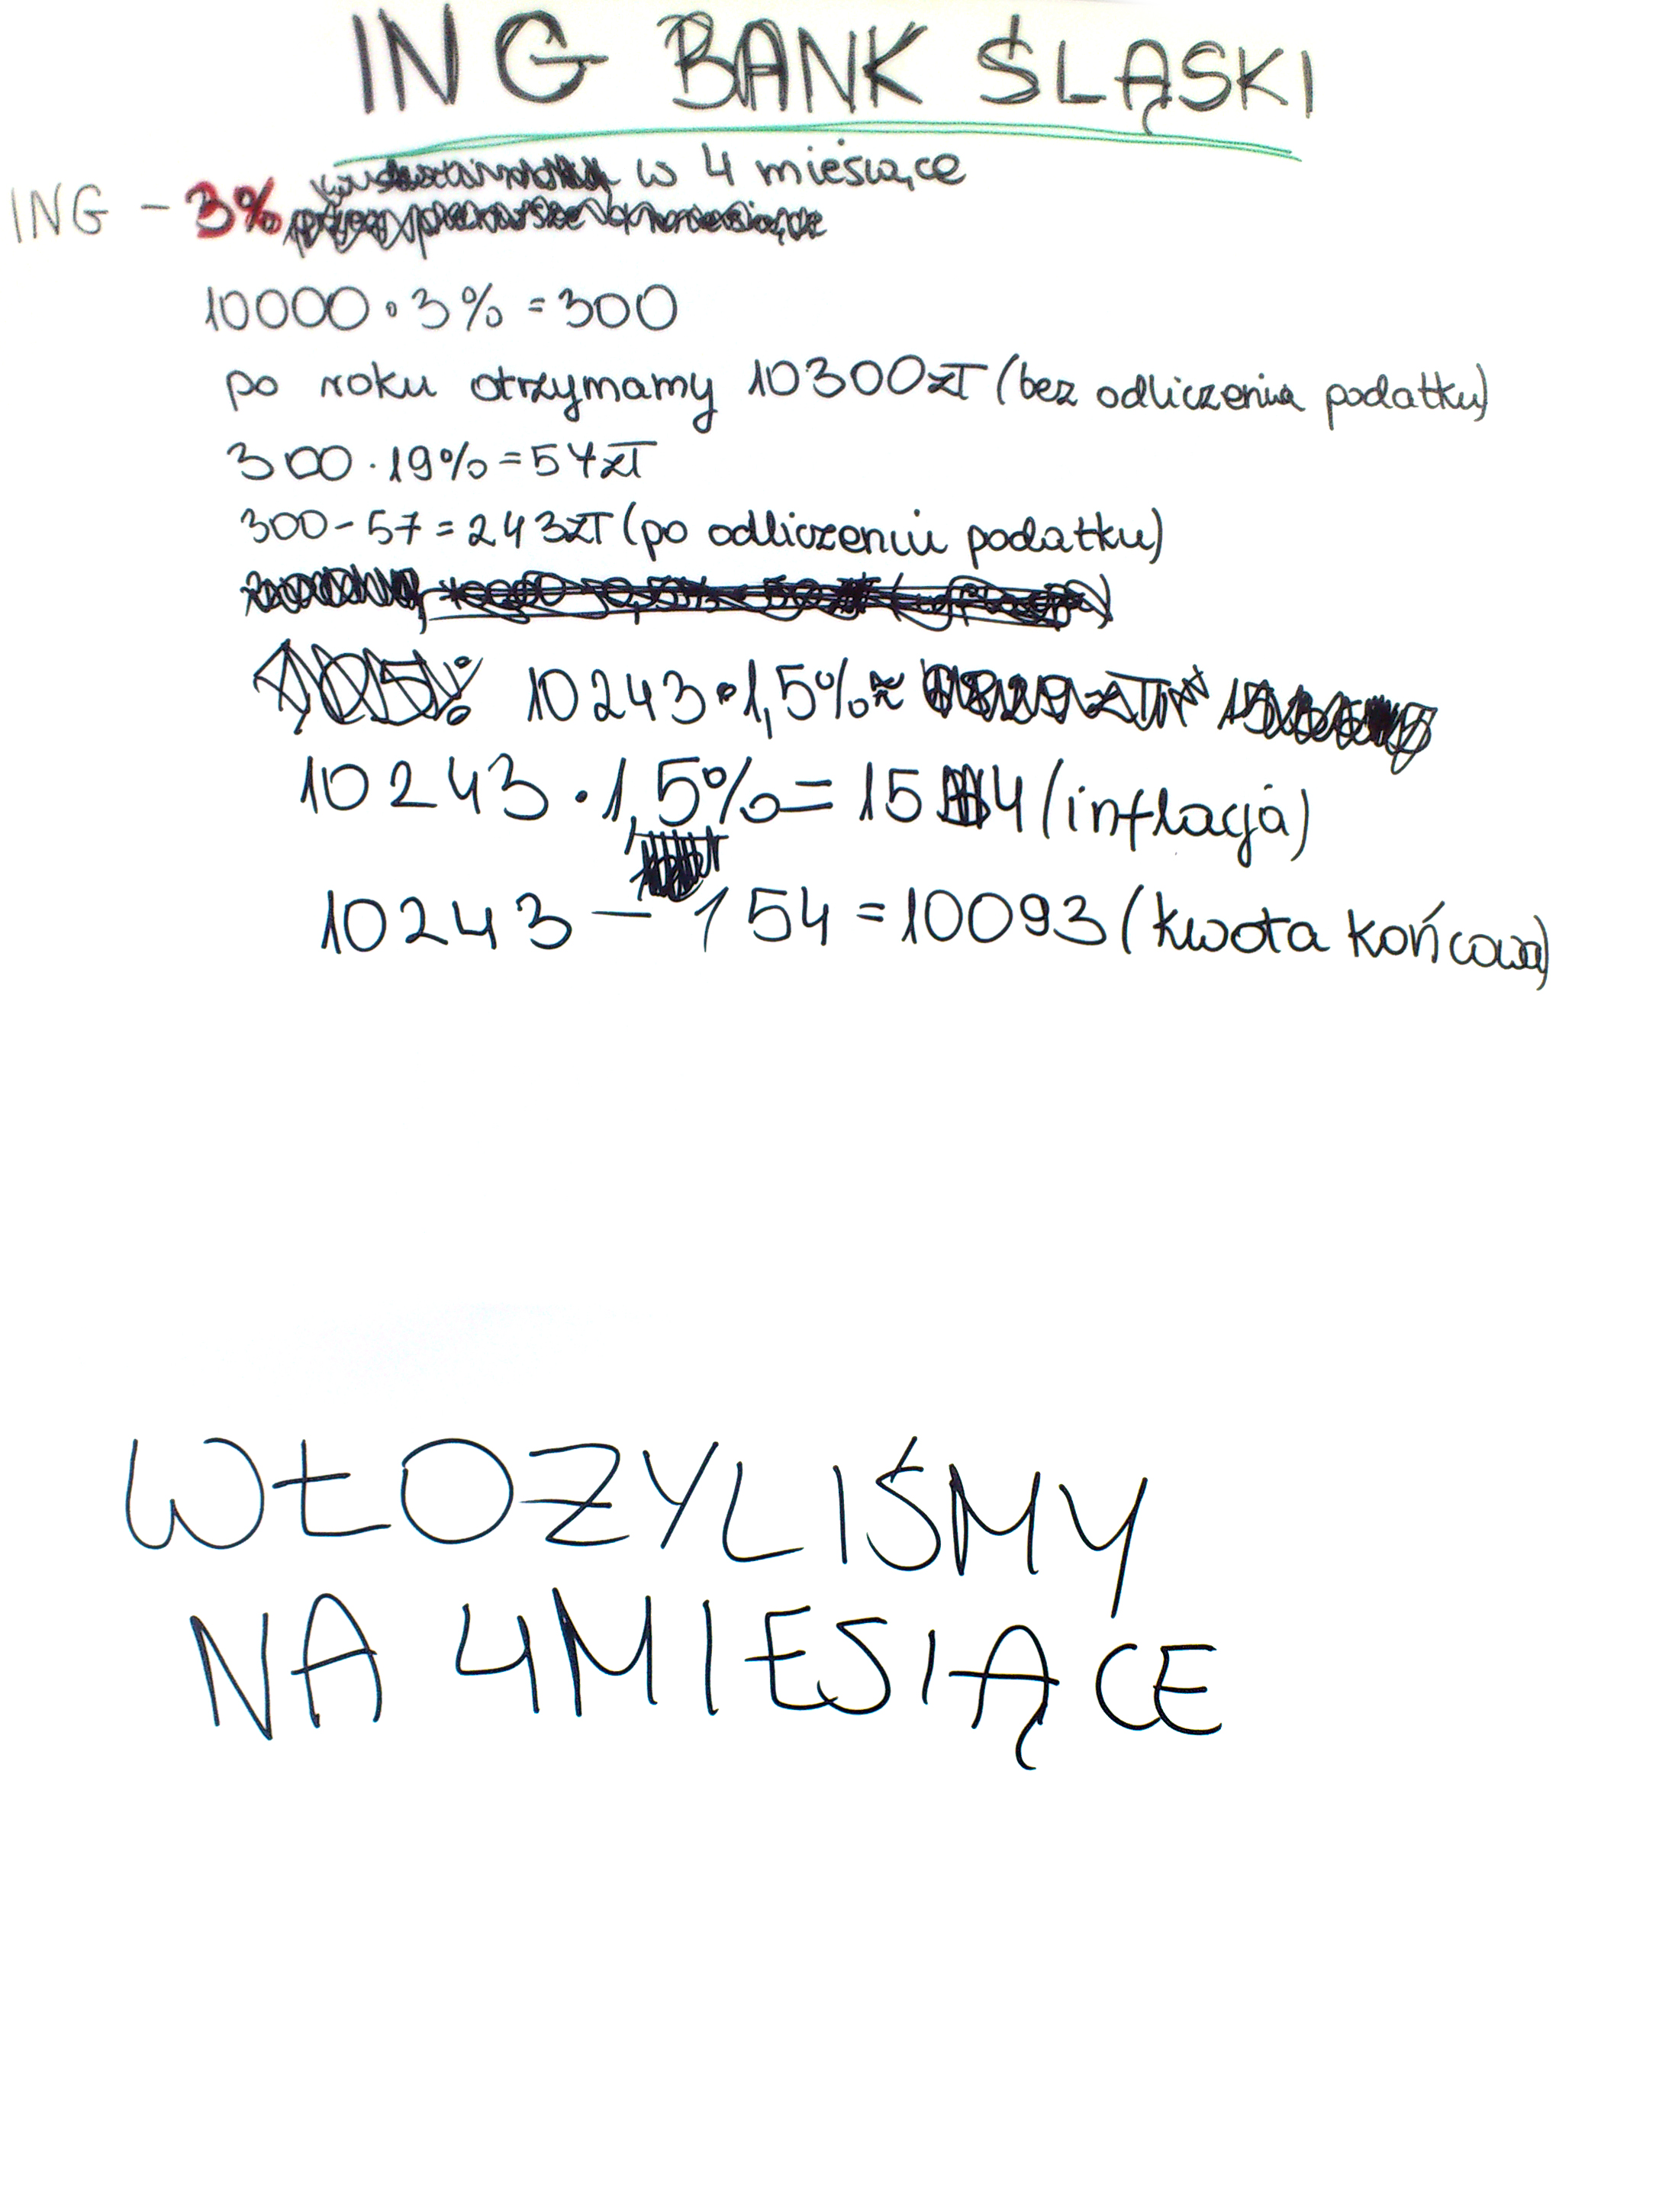 ING BANK ŚLĄSKI
w 4 miesiące
ING - 3%
10000 · 3% = 300
po roku otrzymamy 10300zł (bez odliczenia podatku)
300 · 19% = 57zł
300 - 57 = 243zł (po odliczeniu podatku)
10243 · 1,5% ≈
10243 · 1,5% = 154 (inflacja)
10243 - 154 = 10093 (kwota końcowa)
WŁOZYLIŚMY
NA 4MIESIĄCE